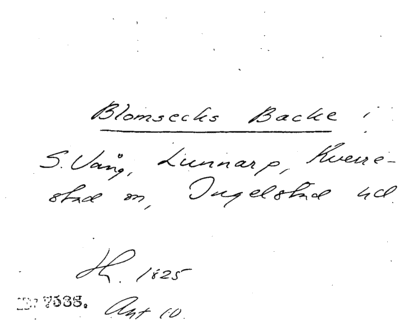 Blomsecks Backe i
S. Vång, Lunnarp, Kverre-
stad sn, Ingelstad hd.
Hh. 1825
7635. Ant 10.